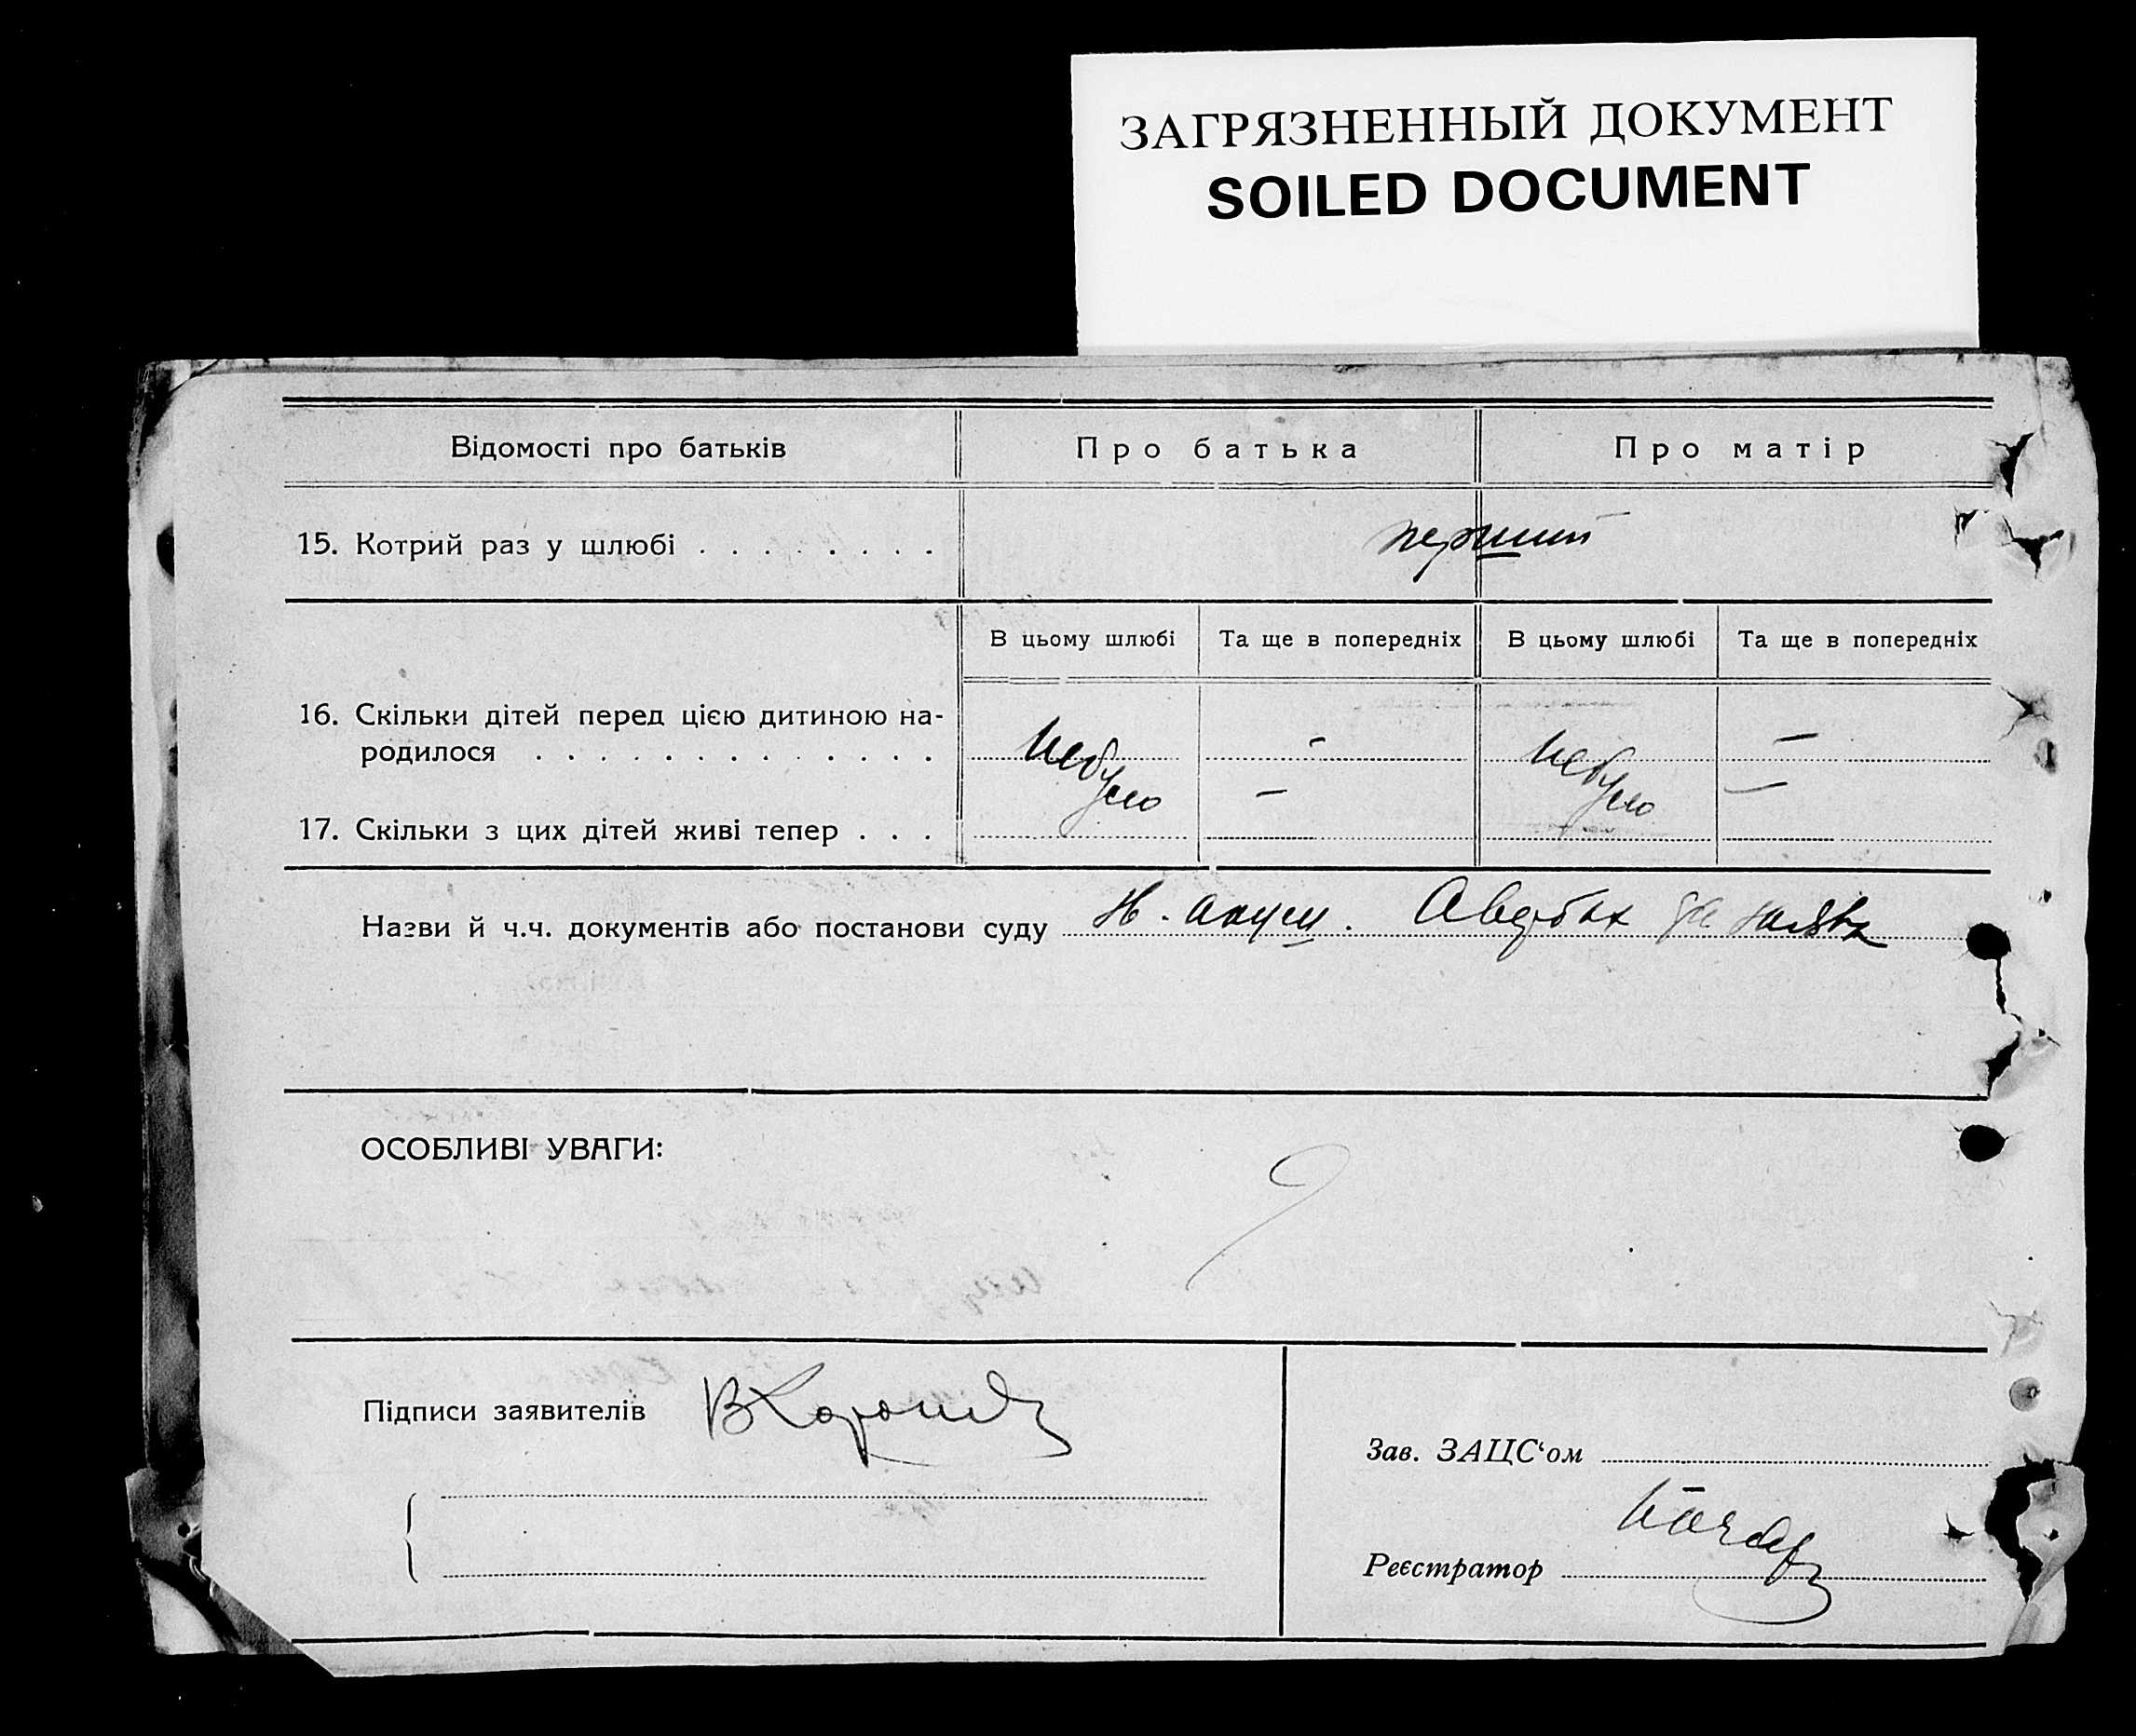 ЗАГРЯЗНЕННЫЙ ДОКУМЕНТ
SOILED DOCUMENT
Відомості про батьків Про батька Про матір
15. Котрий раз у шлюбі . . . . . . . . перший
В цьому шлюбі Та ще в попередніх В цьому шлюбі Та ще в попередніх
16. Скільки дітей перед цією дитиною на-
родилося . . . . . . . . . . . . . небуло – небуло –
17. Скільки з цих дітей живі тепер . . . – –
Назви й ч.ч. документів або постанови суду
ОСОБЛИВІ УВАГИ:
Підписи заявителів
Зав. ЗАЦС‘ом
Реєстратор